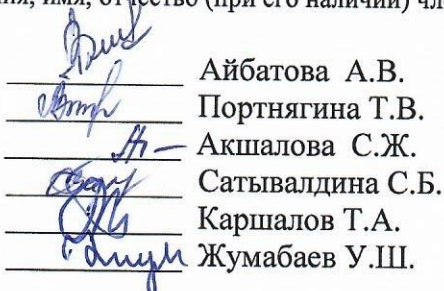 имя, отчество (при его наличии)
Айбатова А.В.
Портнягина Т.В.
Акшалова С.Ж.
Сатывалдина С.Б.
Каршалов Т.А.
Жумабаев У.Ш.